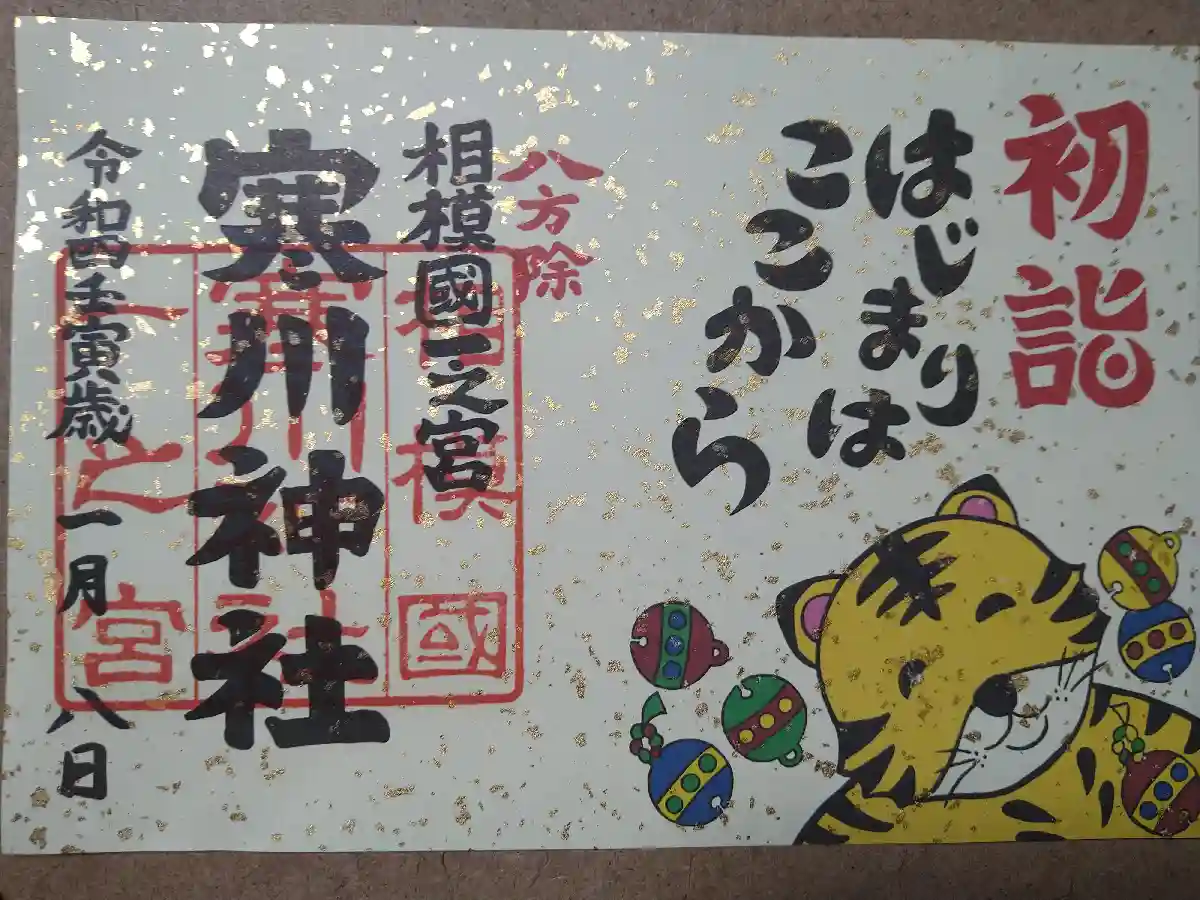 初詣
はじまりは
ここから
八方除
相模國一之宮
寒川神社
令和四壬寅歳 一月 八日
相模國
寒川神社
一之宮